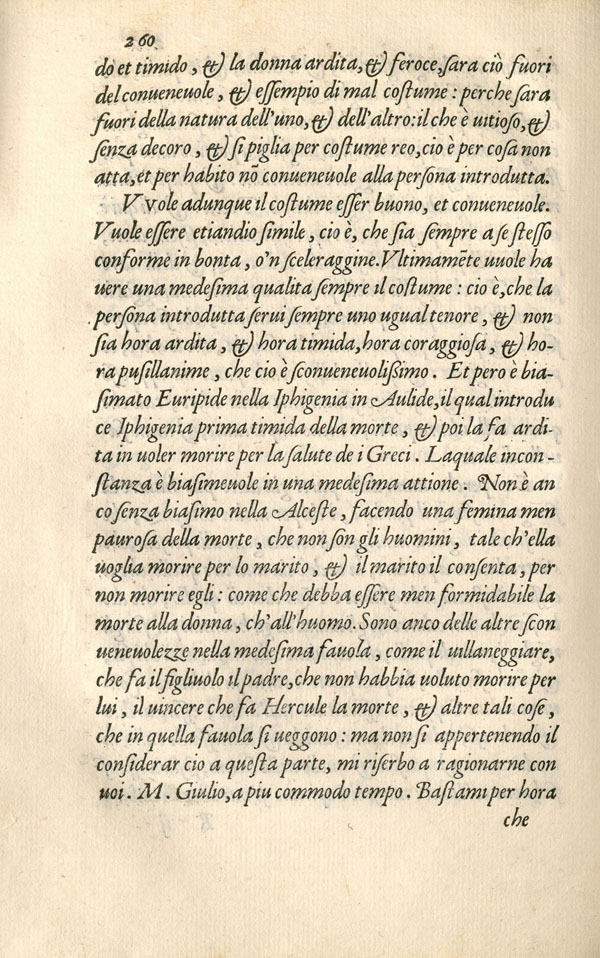 260
do et timido, & la donna ardita, & feroce, sara ciò fuori
del conueneuole, & essempio di mal costume: perche sara
fuori della natura dell'uno, & dell'altro: il che è uitioso, &
senza decoro, & si piglia per costume reo, cio è per cosa non
atta, et per habito nõ conueneuole alla persona introdutta.
VVole adunque il costume esser buono, et conueneuole.
Vuole essere etiandio simile, cio è, che sia sempre a se stesso
conforme in bonta, o'n sceleraggine. Vltimamẽte uuole ha
uere una medesima qualita sempre il costume: cio è, che la
persona introdutta serui sempre uno ugual tenore, & non
sia hora ardita, & hora timida, hora coraggiosa, & ho-
ra pusillanime, che cio è sconueneuolißimo. Et pero è bia-
simato Euripide nella Iphigenia in Aulide, il qual introdu
ce Iphigenia prima timida della morte, & poi la fa ardi-
ta in uoler morire per la salute de i Greci. Laquale incon-
stanza è biasimeuole in una medesima attione. Non è an
co senza biasimo nella Alceste, facendo una femina men
paurosa della morte, che non son gli huomini, tale ch'ella
uoglia morire per lo marito, & il marito il consenta, per
non morire egli: come che debba essere men formidabile la
morte alla donna, ch'all'huomo. Sono anco delle altre scon
ueneuolezze nella medesima fauola, come il uillaneggiare,
che fa il figliuolo il padre, che non habbia uoluto morire per
lui, il uincere che fa Hercule la morte, & altre tali cose,
che in quella fauola si ueggono: ma non si appertenendo il
considerar cio a questa parte, mi riserbo a ragionarne con
uoi. M. Giulio, a piu commodo tempo. Bastami per hora
che